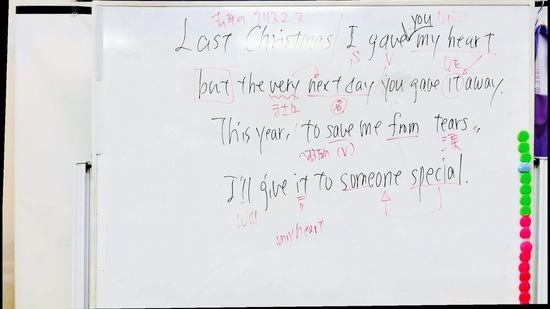 去年のクリスマス
you
Last Christmas I gave my heart
S V
but the very next day you gave it away.
This year, to save me from tears,
(V) 涙
I'll give it to someone special.
will
my heart